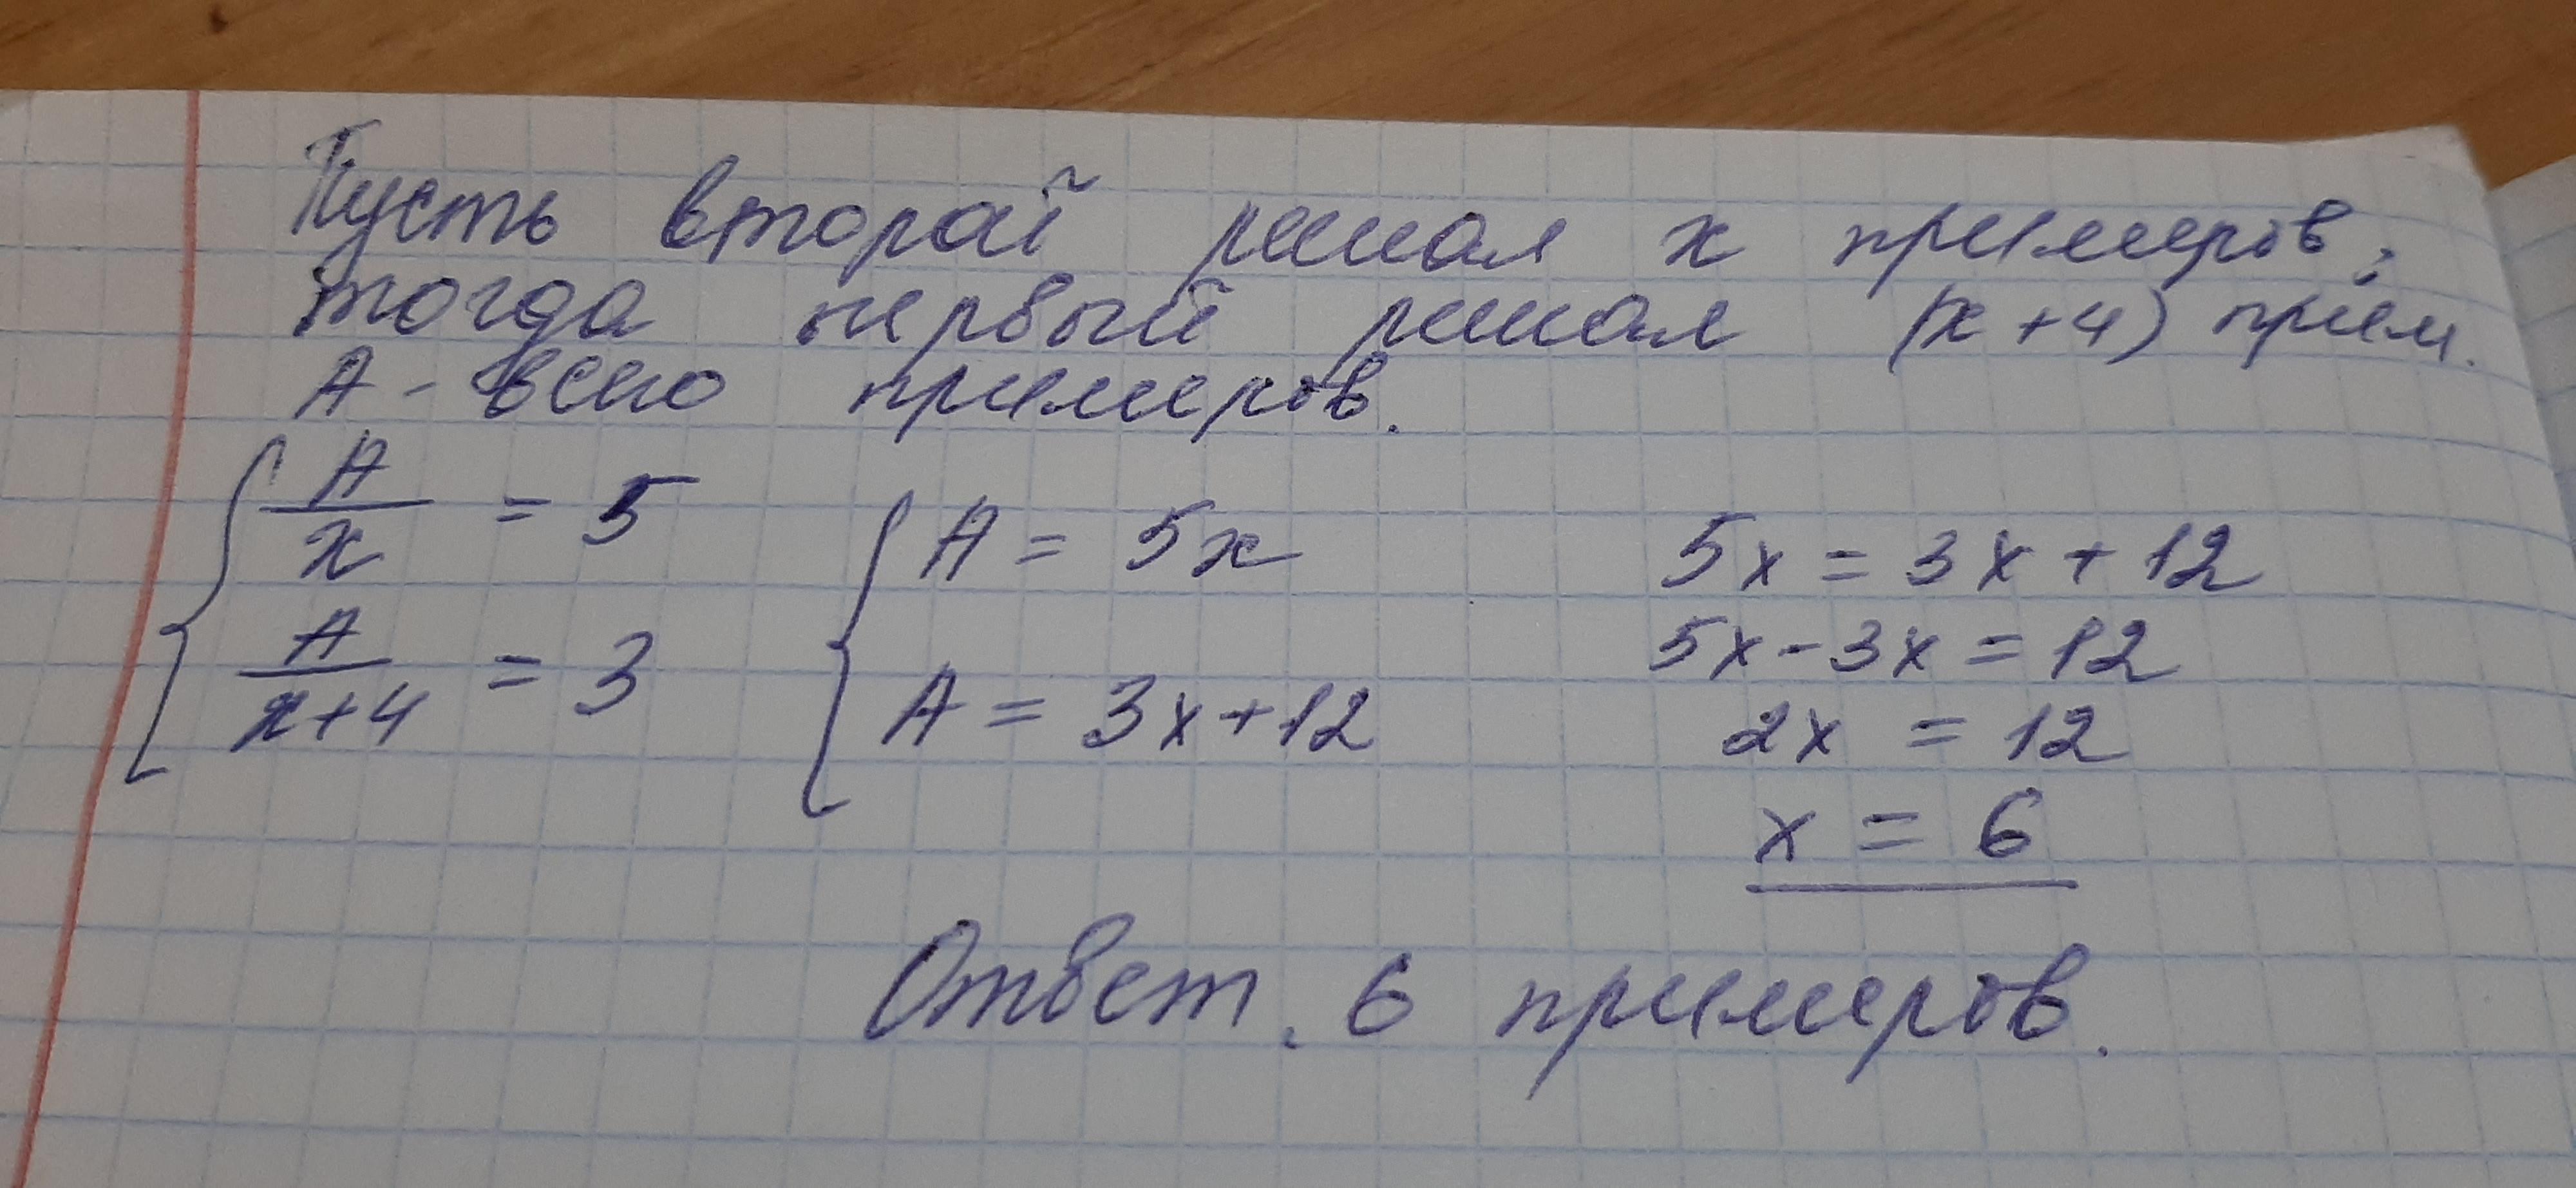 Пусть второй решал x примеров,
тогда первый решал (x+4) прим.
A - всего примеров.
A/x = 5
A/(x+4) = 3
A = 5x
A = 3x+12
5x = 3x + 12
5x - 3x = 12
2x = 12
x = 6
Ответ. 6 примеров.